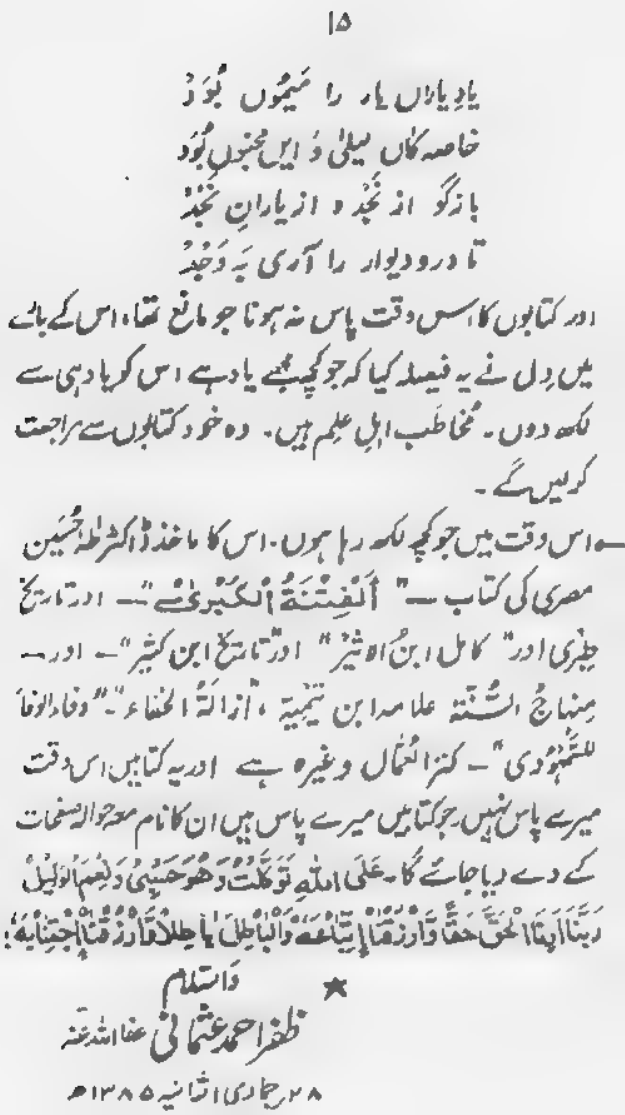 ۱۵
یادِ یاراں یار را مَیمُوں بُوَدْ
خاصہ کاں لیلیٰ وُ ایں مجنوں بُوَد
بازگو از نَجْد و از یارانِ نَجْدْ
تا در و دیوار را آری بَہ وَجْدْ
اور کتابوں کا اس وقت پاس نہ ہونا جو مانع تھا، اس کے بارے
میں دِل نے یہ فیصلہ کیا کہ جو کچھ مجھے یاد ہے اس کو یاد ہی سے
لکھ دوں۔ مُخاطَب اہلِ عِلم ہیں۔ وہ خود کتابوں سے مراجعت
کرلیں گے۔
اس وقت میں جو کچھ لکھ رہا ہوں۔ اس کا ماخذ ڈاکٹر طٰہٰ حُسَین
مصری کی کتاب — "اَلْفِتْنَةُ الْکُبْریٰ" — اور تاریخ
طبری اور "کامل ابنُ الاثیر" اور "تاریخ ابن کثیر" — اور —
مِنہاجُ السُّنّتہ علامہ ابن تَیمِیۃ، "اَزالَۃُ الخفاء"۔ "وفاء الوفا
للسَّمْہُودی"۔ کنز العُمال وغیرہ ہے اور یہ کتابیں اس وقت
میرے پاس نہیں، جو کتابیں میرے پاس ہیں ان کا نام معہ حوالہ صفحات
کے دے دیا جائے گا۔ عَلَی اللهِ تَوَکَّلْتُ وَهُوَ حَسْبِیْ وَنِعْمَ الْوَکِیْلُ
رَبَّنَا اَرِنَا الْحَقَّ حَقًّا وَّارْزُقْنَا اِتِّبَاعَهٗ وَالْبَاطِلَ بَاطِلًا وَّارْزُقْنَا اجْتِنَابَهٗ؛
★ وَالسَّلام
ظفر احمد عثمانی عفا اللہ عنہ
۲۸ جمادی الثانیہ ۱۳۸۵ھ